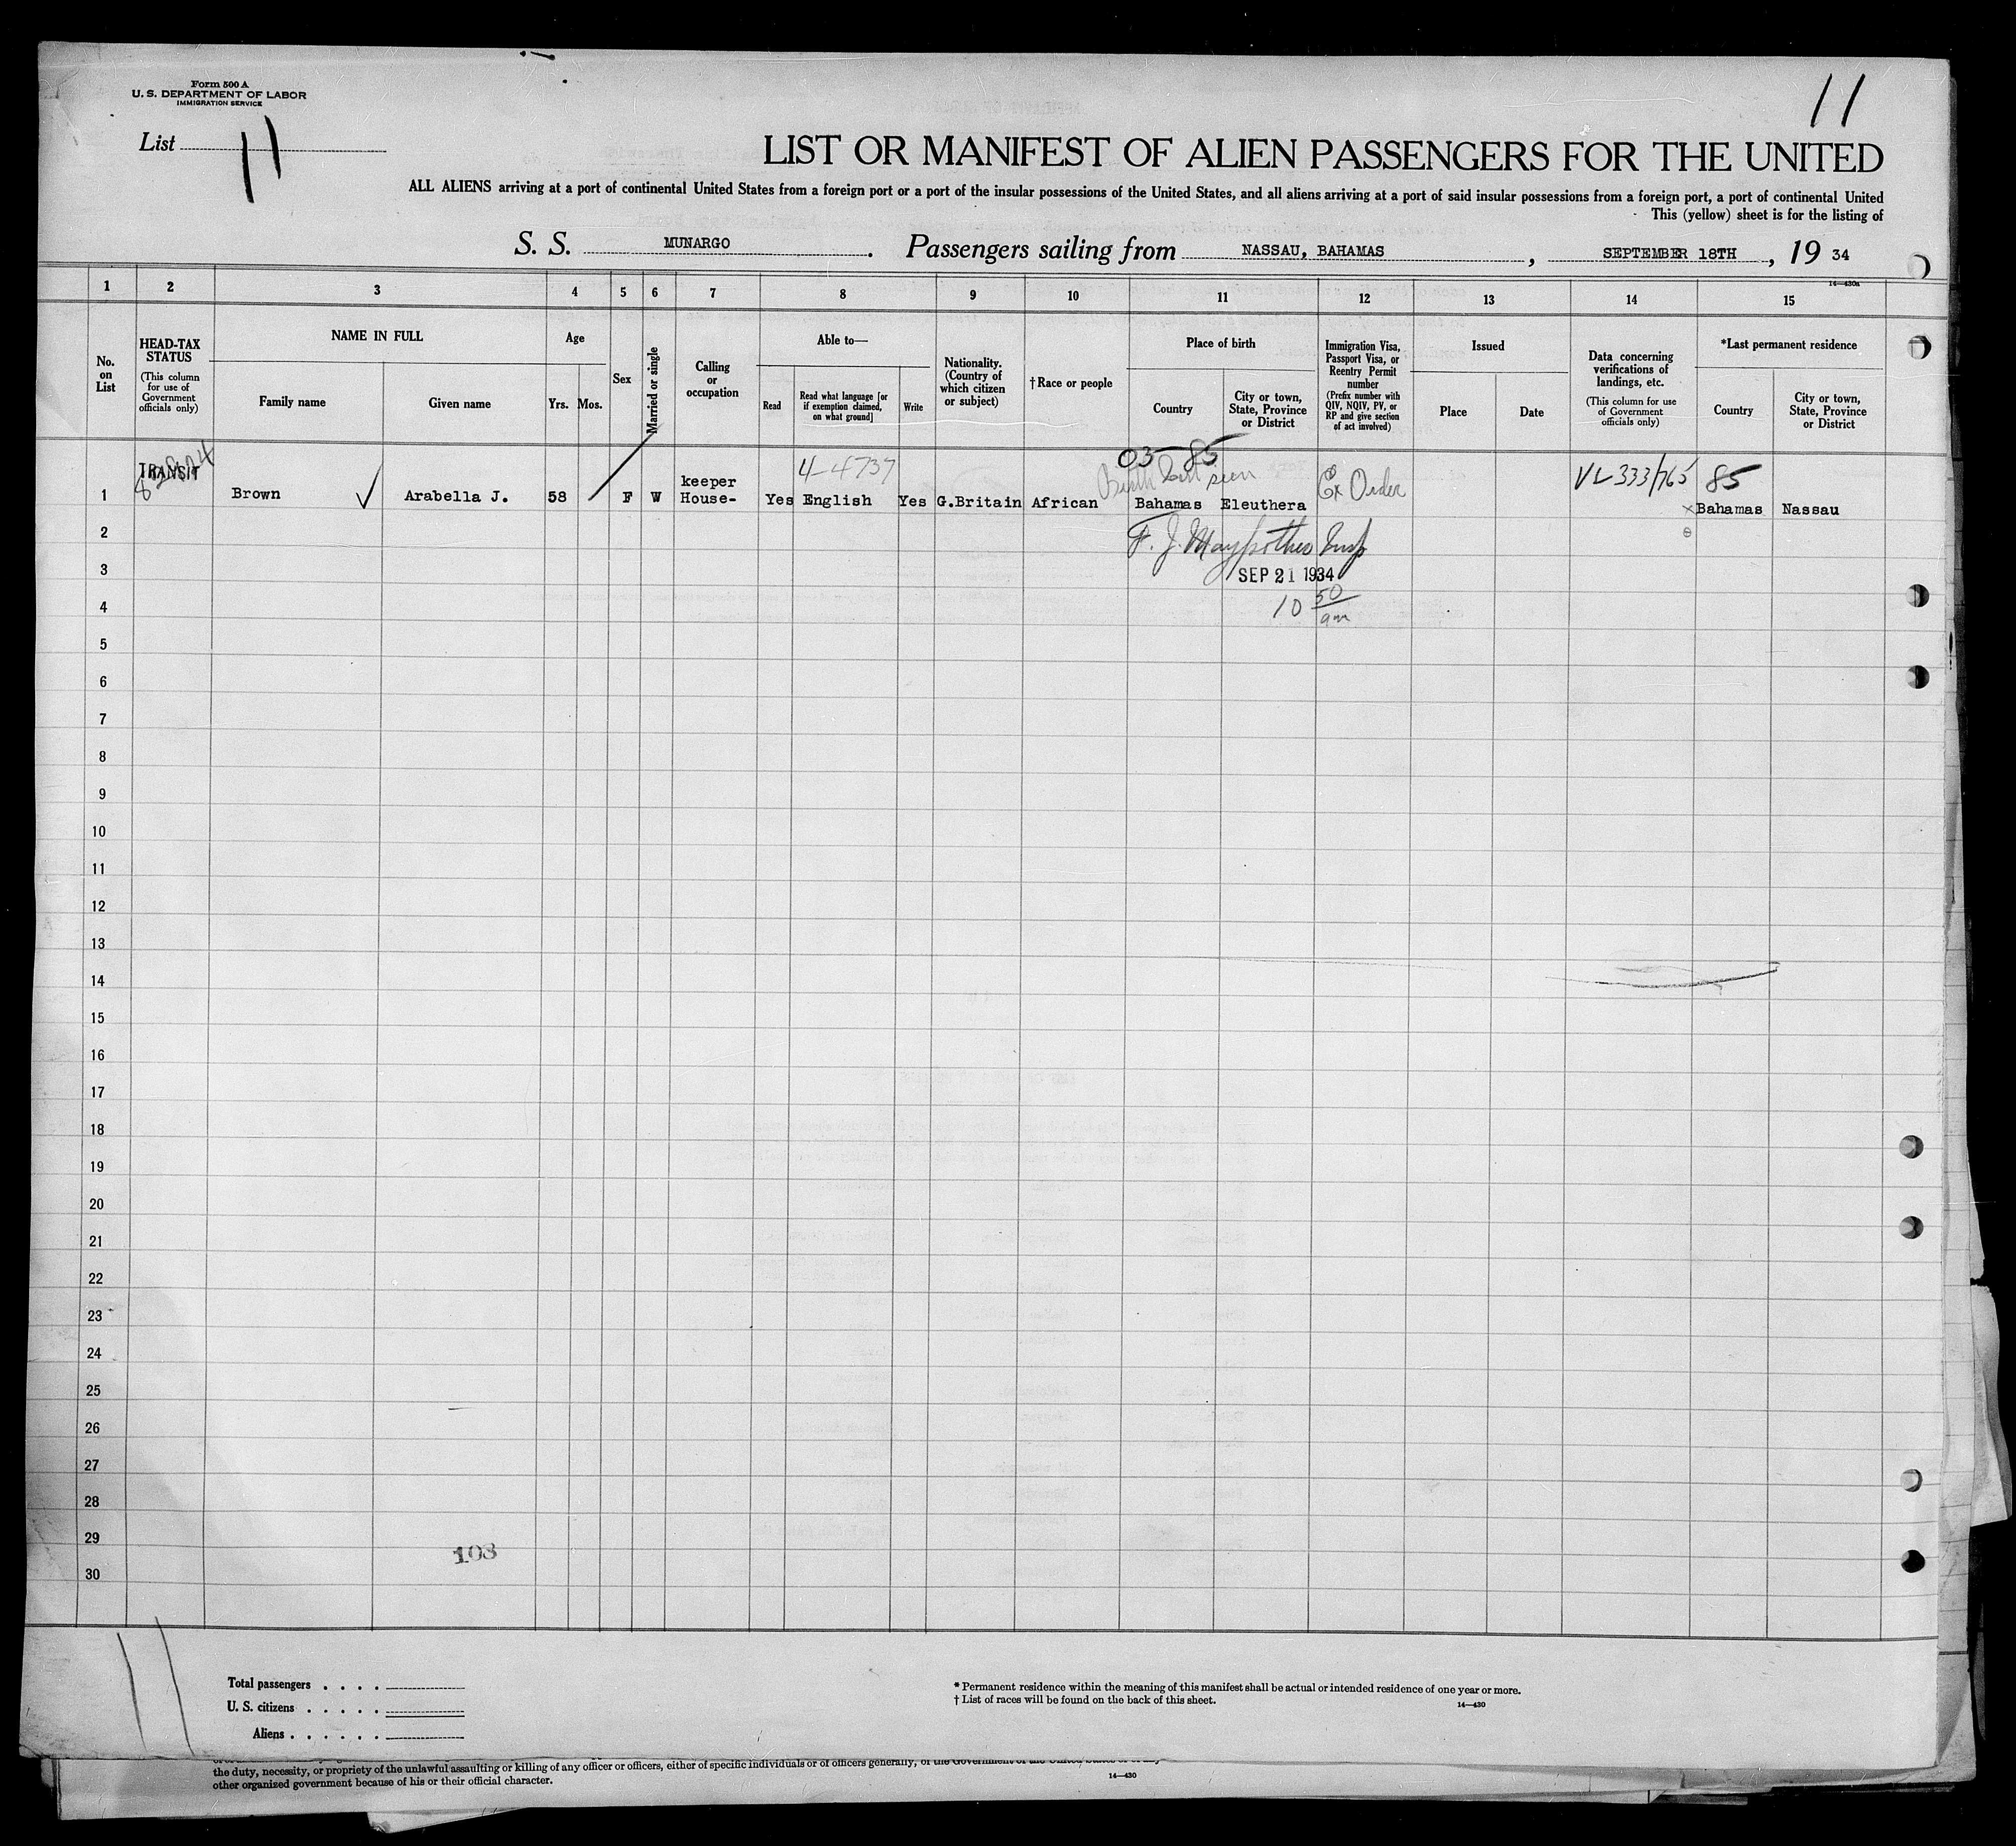 Form 500 A
U. S. DEPARTMENT OF LABOR
IMMIGRATION SERVICE
List 11
11
LIST OR MANIFEST OF ALIEN PASSENGERS FOR THE UNITED
ALL ALIENS arriving at a port of continental United States from a foreign port or a port of the insular possessions of the United States, and all aliens arriving at a port of said insular possessions from a foreign port, a port of continental United
This (yellow) sheet is for the listing of
S. S. MUNARGO. Passengers sailing from NASSAU, BAHAMAS, SEPTEMBER 18TH, 19 34
14—430a
1 2 3 4 5 6 7 8 9 10 11 12 13 14 15
No. on List
HEAD-TAX STATUS
(This column for use of Government officials only)
NAME IN FULL
Family name
Given name
Age
Yrs. Mos.
Sex
Married or single
Calling or occupation
Able to—
Read
Read what language [or if exemption claimed, on what ground]
Write
Nationality. (Country of which citizen or subject)
†Race or people
Place of birth
Country
City or town, State, Province or District
Immigration Visa, Passport Visa, or Reentry Permit number
(Prefix number with QIV, NQIV, PV, or RP and give section of act involved)
Issued
Place
Date
Data concerning verifications of landings, etc.
(This column for use of Government officials only)
*Last permanent residence
Country
City or town, State, Province or District
03—85
TRANSIT
4-4737
Birth Cert seen
Ex Order
VL 333/765
85
keeper
1 Brown ✓ Arabella J. 58 F W House- Yes English Yes G.Britain African Bahamas Eleuthera x Bahamas Nassau
2
Insp
3
SEP 21 1934
4
10 50 am
5
6
7
8
9
10
11
12
13
14
15
16
17
18
19
20
21
22
23
24
25
26
27
28
29
108
30
11
Total passengers . . . .
U. S. citizens . . . . .
Aliens . . . . . .
* Permanent residence within the meaning of this manifest shall be actual or intended residence of one year or more.
† List of races will be found on the back of this sheet.
14—430
the duty, necessity, or propriety of the unlawful assaulting or killing of any officer or officers, either of specific individuals or of officers generally, of the Government of the United States or of any
other organized government because of his or their official character.
14—430